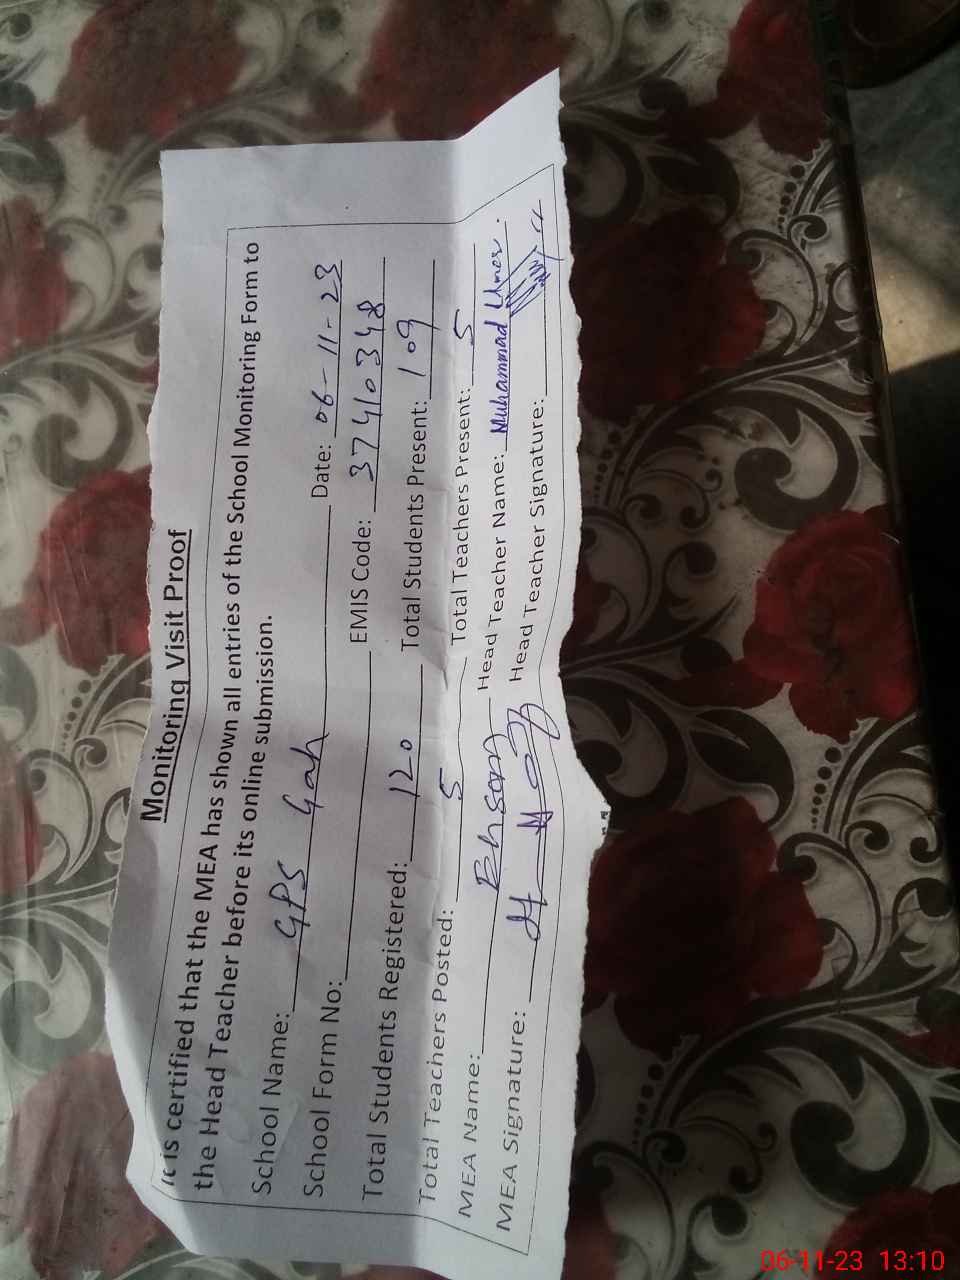 Monitoring Visit Proof
It is certified that the MEA has shown all entries of the School Monitoring Form to
the Head Teacher before its online submission.
School Name: GPS Gah Date: 06-11-23
School Form No: EMIS Code: 37410348
Total Students Registered: 120 Total Students Present: 109
Total Teachers Posted: 5 Total Teachers Present: 5
MEA Name: Ehsan Head Teacher Name: Muhammad Umer.
MEA Signature: Head Teacher Signature:
06-11-23 13:10